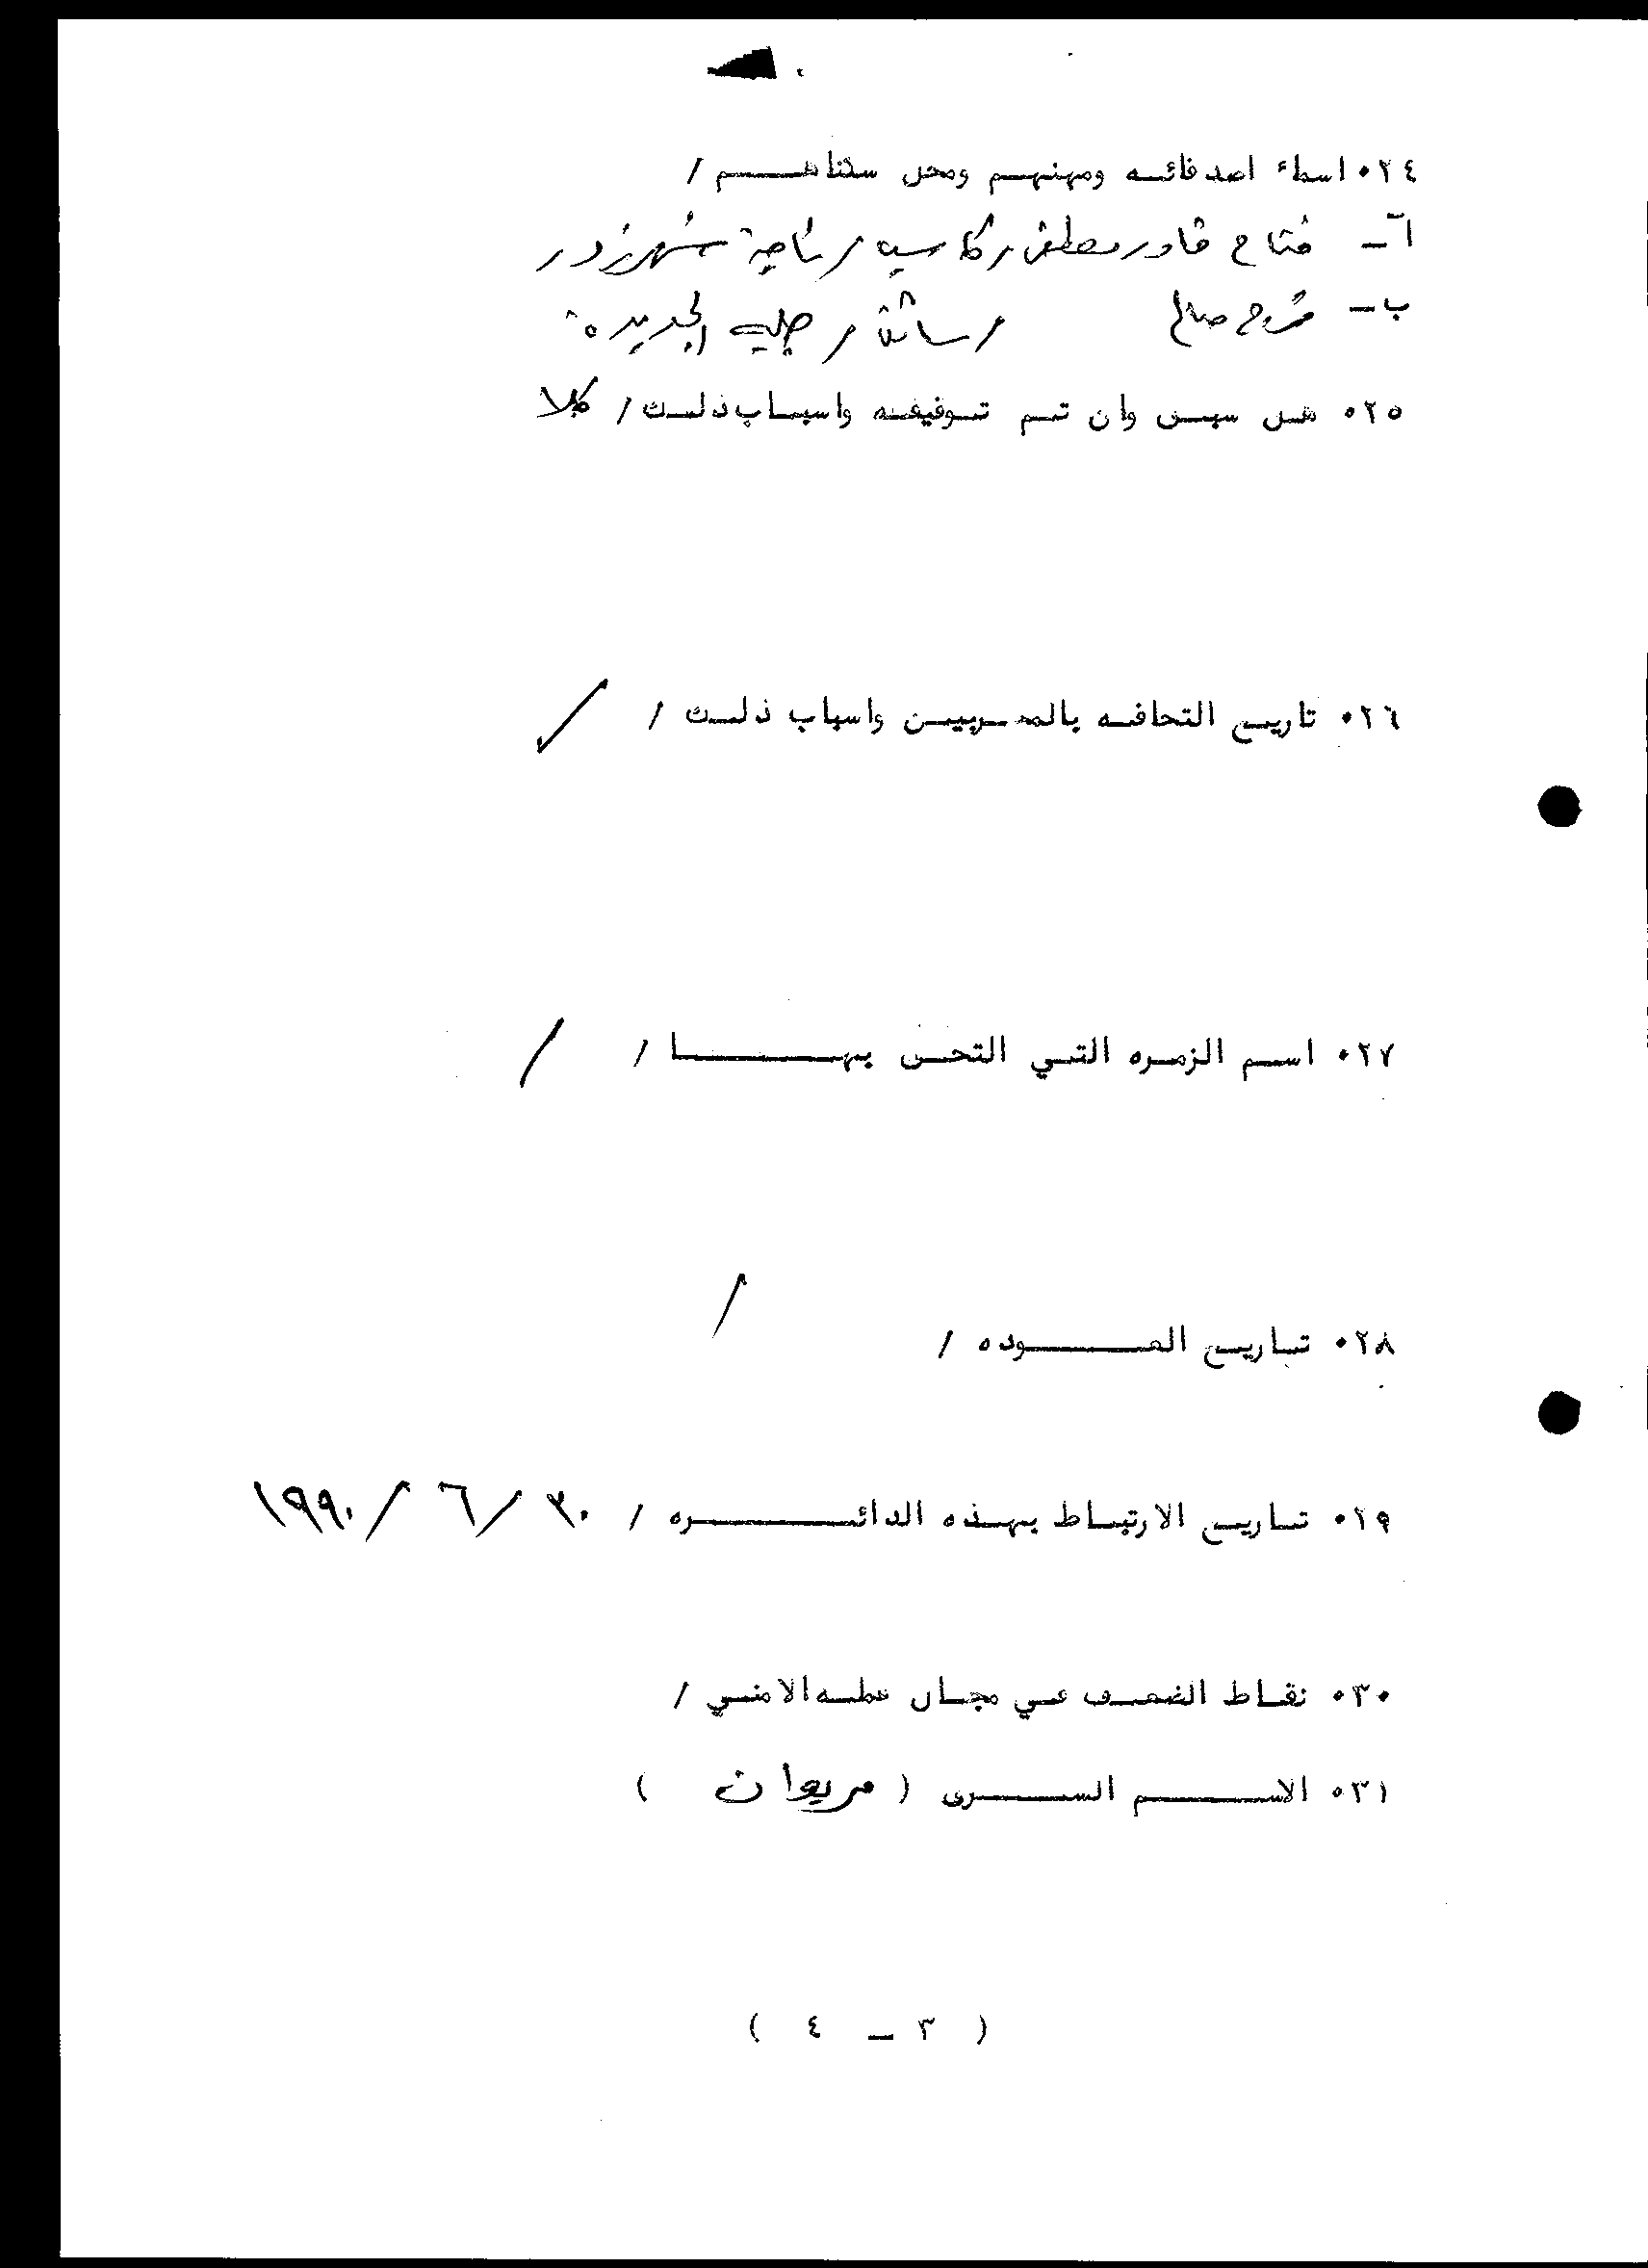 ٠٢٤ اسماء اصدقائه ومهنهم ومحل سكناهم /
أ- فتاح قادر مصطفى / كاسب / ناحية شهرزور
ب- فرج صالح / سائق / حلبجة الجديدة
٠٢٥ هل سبق وان تم توقيفه واسباب ذلك / كلا
٠٢٦ تاريخ التحاقه بالمخربين واسباب ذلك / /
٠٢٧ اسم الزمره التي التحق بها / /
٠٢٨ تاريخ العوده / /
٠٢٩ تاريخ الارتباط بهذه الدائره / ٣٠ / ٦ / ١٩٩٠
٠٣٠ نقاط الضعف في مجال عمله الامني /
٠٣١ الاسم السرى ( مريوان )
( ٣ - ٤ )